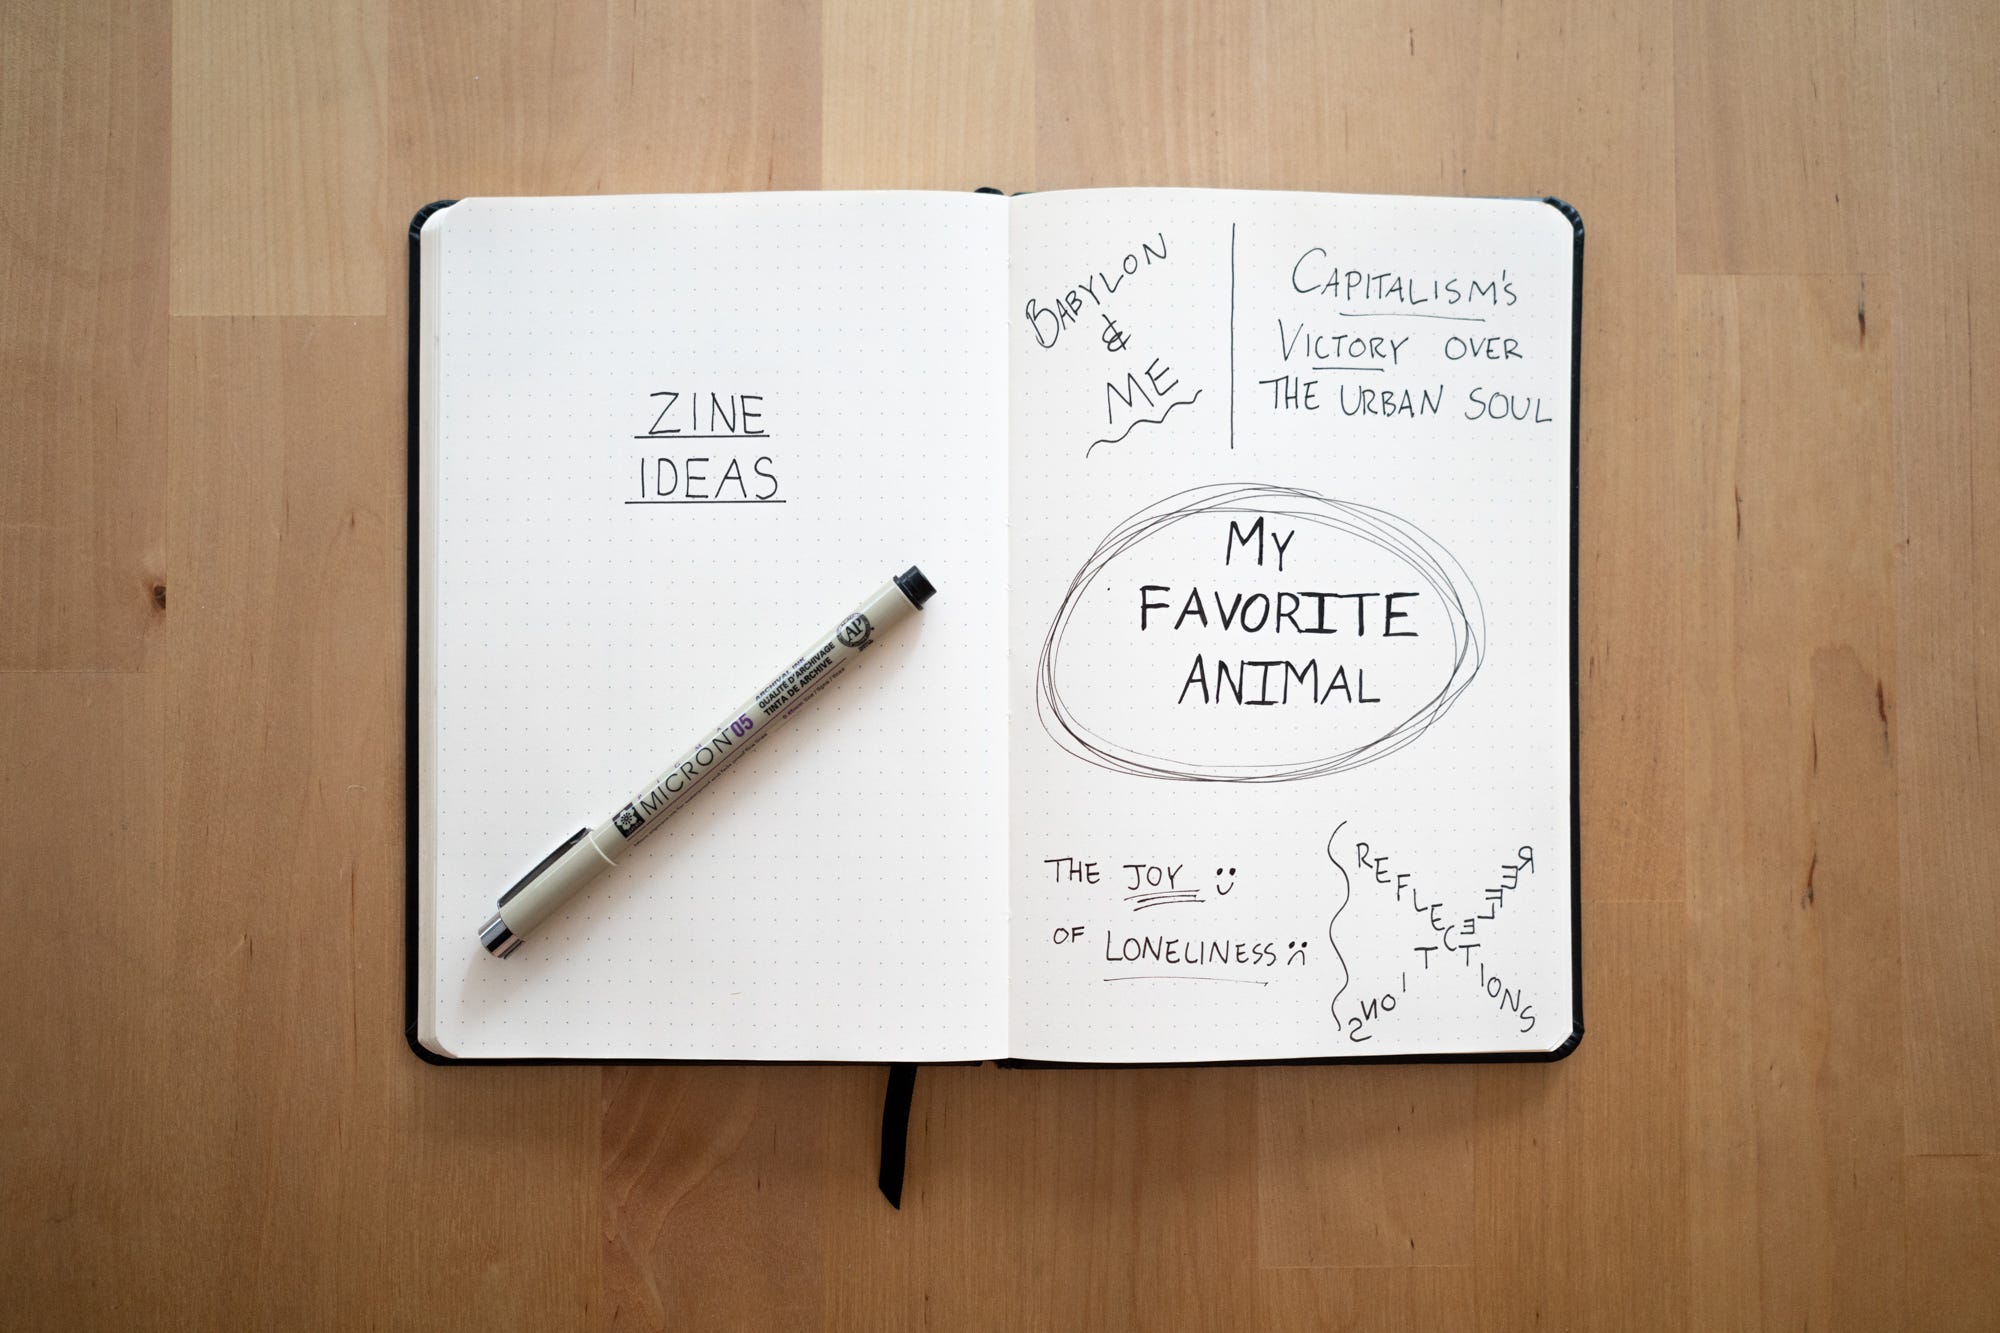 ZINE
IDEAS
MICRON 05
ARCHIVAL INK
QUALITÉ D'ARCHIVAGE
TINTA DE ARCHIVE
AP
BABYLON
&
ME
CAPITALISM'S
VICTORY OVER
THE URBAN SOUL
MY
FAVORITE
ANIMAL
THE JOY
OF LONELINESS
REFLECTIONS
REFLECTIONS